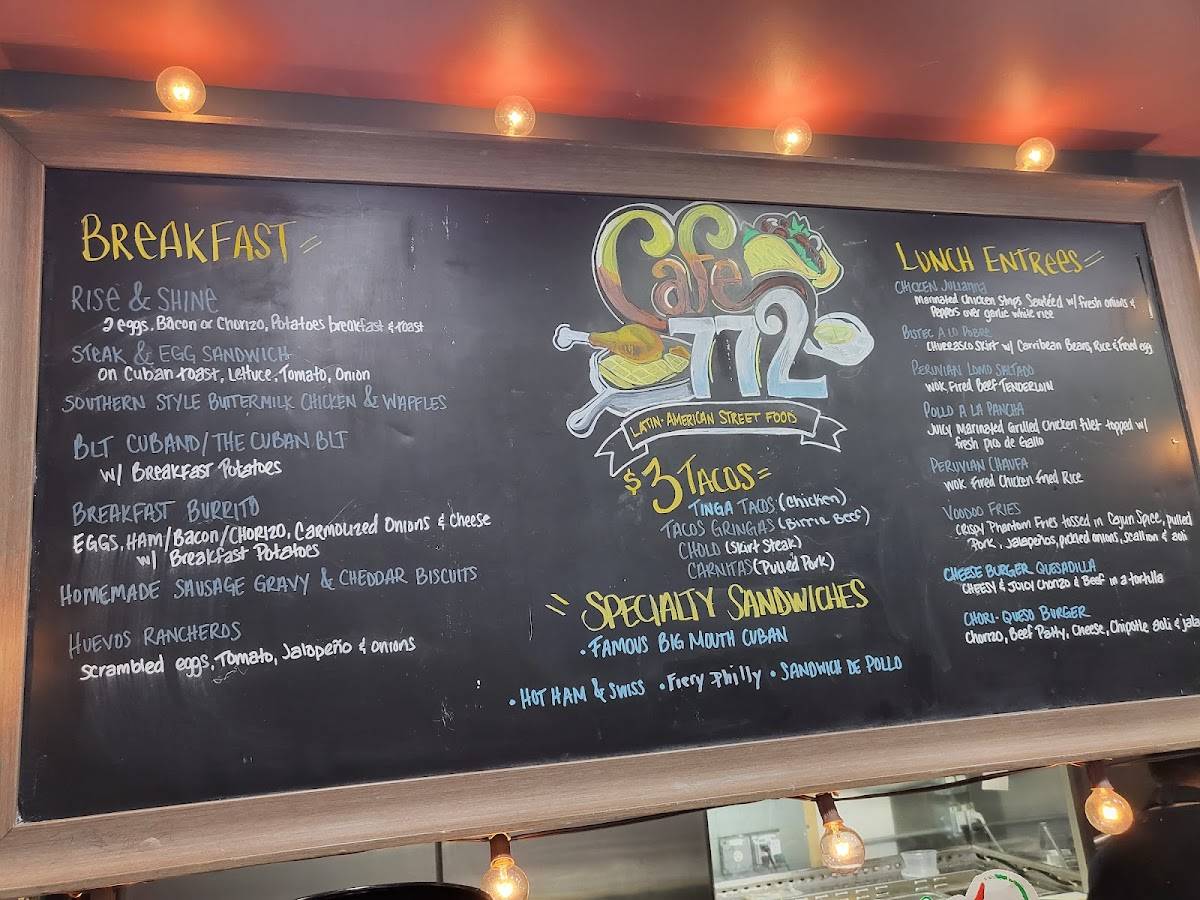 BREAKFAST
RISE & SHINE
2 eggs, Bacon or Chorizo, Potatoes breakfast & toast
STEAK & EGG SANDWICH
on Cuban toast, Lettuce, Tomato, Onion
SOUTHERN STYLE BUTTERMILK CHICKEN & WAFFLES
BLT CUBANO/THE CUBAN BLT
w/ Breakfast Potatoes
BREAKFAST BURRITO
EGGS, HAM/Bacon/CHORIZO, Carmolized Onions & Cheese
w/ Breakfast Potatoes
HOMEMADE SAUSAGE GRAVY & CHEDDAR BISCUITS
HUEVOS RANCHEROS
Scrambled eggs, Tomato, Jalapeño & onions
Cafe
772
LATIN-AMERICAN STREET FOODS
$3 TACOS
TINGA TACOS (Chicken)
TACOS GRINGAS (Birria Beef)
CHOLO (Skirt Steak)
CARNITAS (Pulled Pork)
SPECIALTY SANDWICHES
• FAMOUS BIG MOUTH CUBAN
• HOT HAM & SWISS • Fiery Philly • SANDWICH DE POLLO
LUNCH ENTREES
CHICKEN Julianna
Marinated Chicken Strips Sautéed w/ fresh onions &
Peppers over garlic white rice
BISTEC A LO POBRE
CHURRASCO SKIRT w/ Carribean Beans, Rice & Fried egg
PERUVIAN LOMO SALTADO
WOK Fired Beef TENDERLOIN
POLLO A LA PANCHA
Juicy Marinated Grilled Chicken filet topped w/
fresh pico de Gallo
PERUVIAN CHAUFA
WOK Fired Chicken Fried Rice
VOODOO FRIES
CRISPY Phantom Fries tossed in Cajun Spice, pulled
Pork, Jalapeños, pickled onions, scallion & aoli
CHEESE BURGER QUESADILLA
CHEESY & JUICY Chorizo & Beef in a tortilla
CHORI-QUESO BURGER
Chorizo, Beef Patty, Cheese, Chipotle aoli & jala